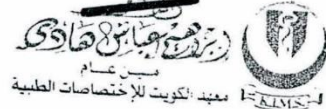 إبراهيم عباس هادي
مين عام
معهد الكويت للإختصاصات الطبية
KIMS